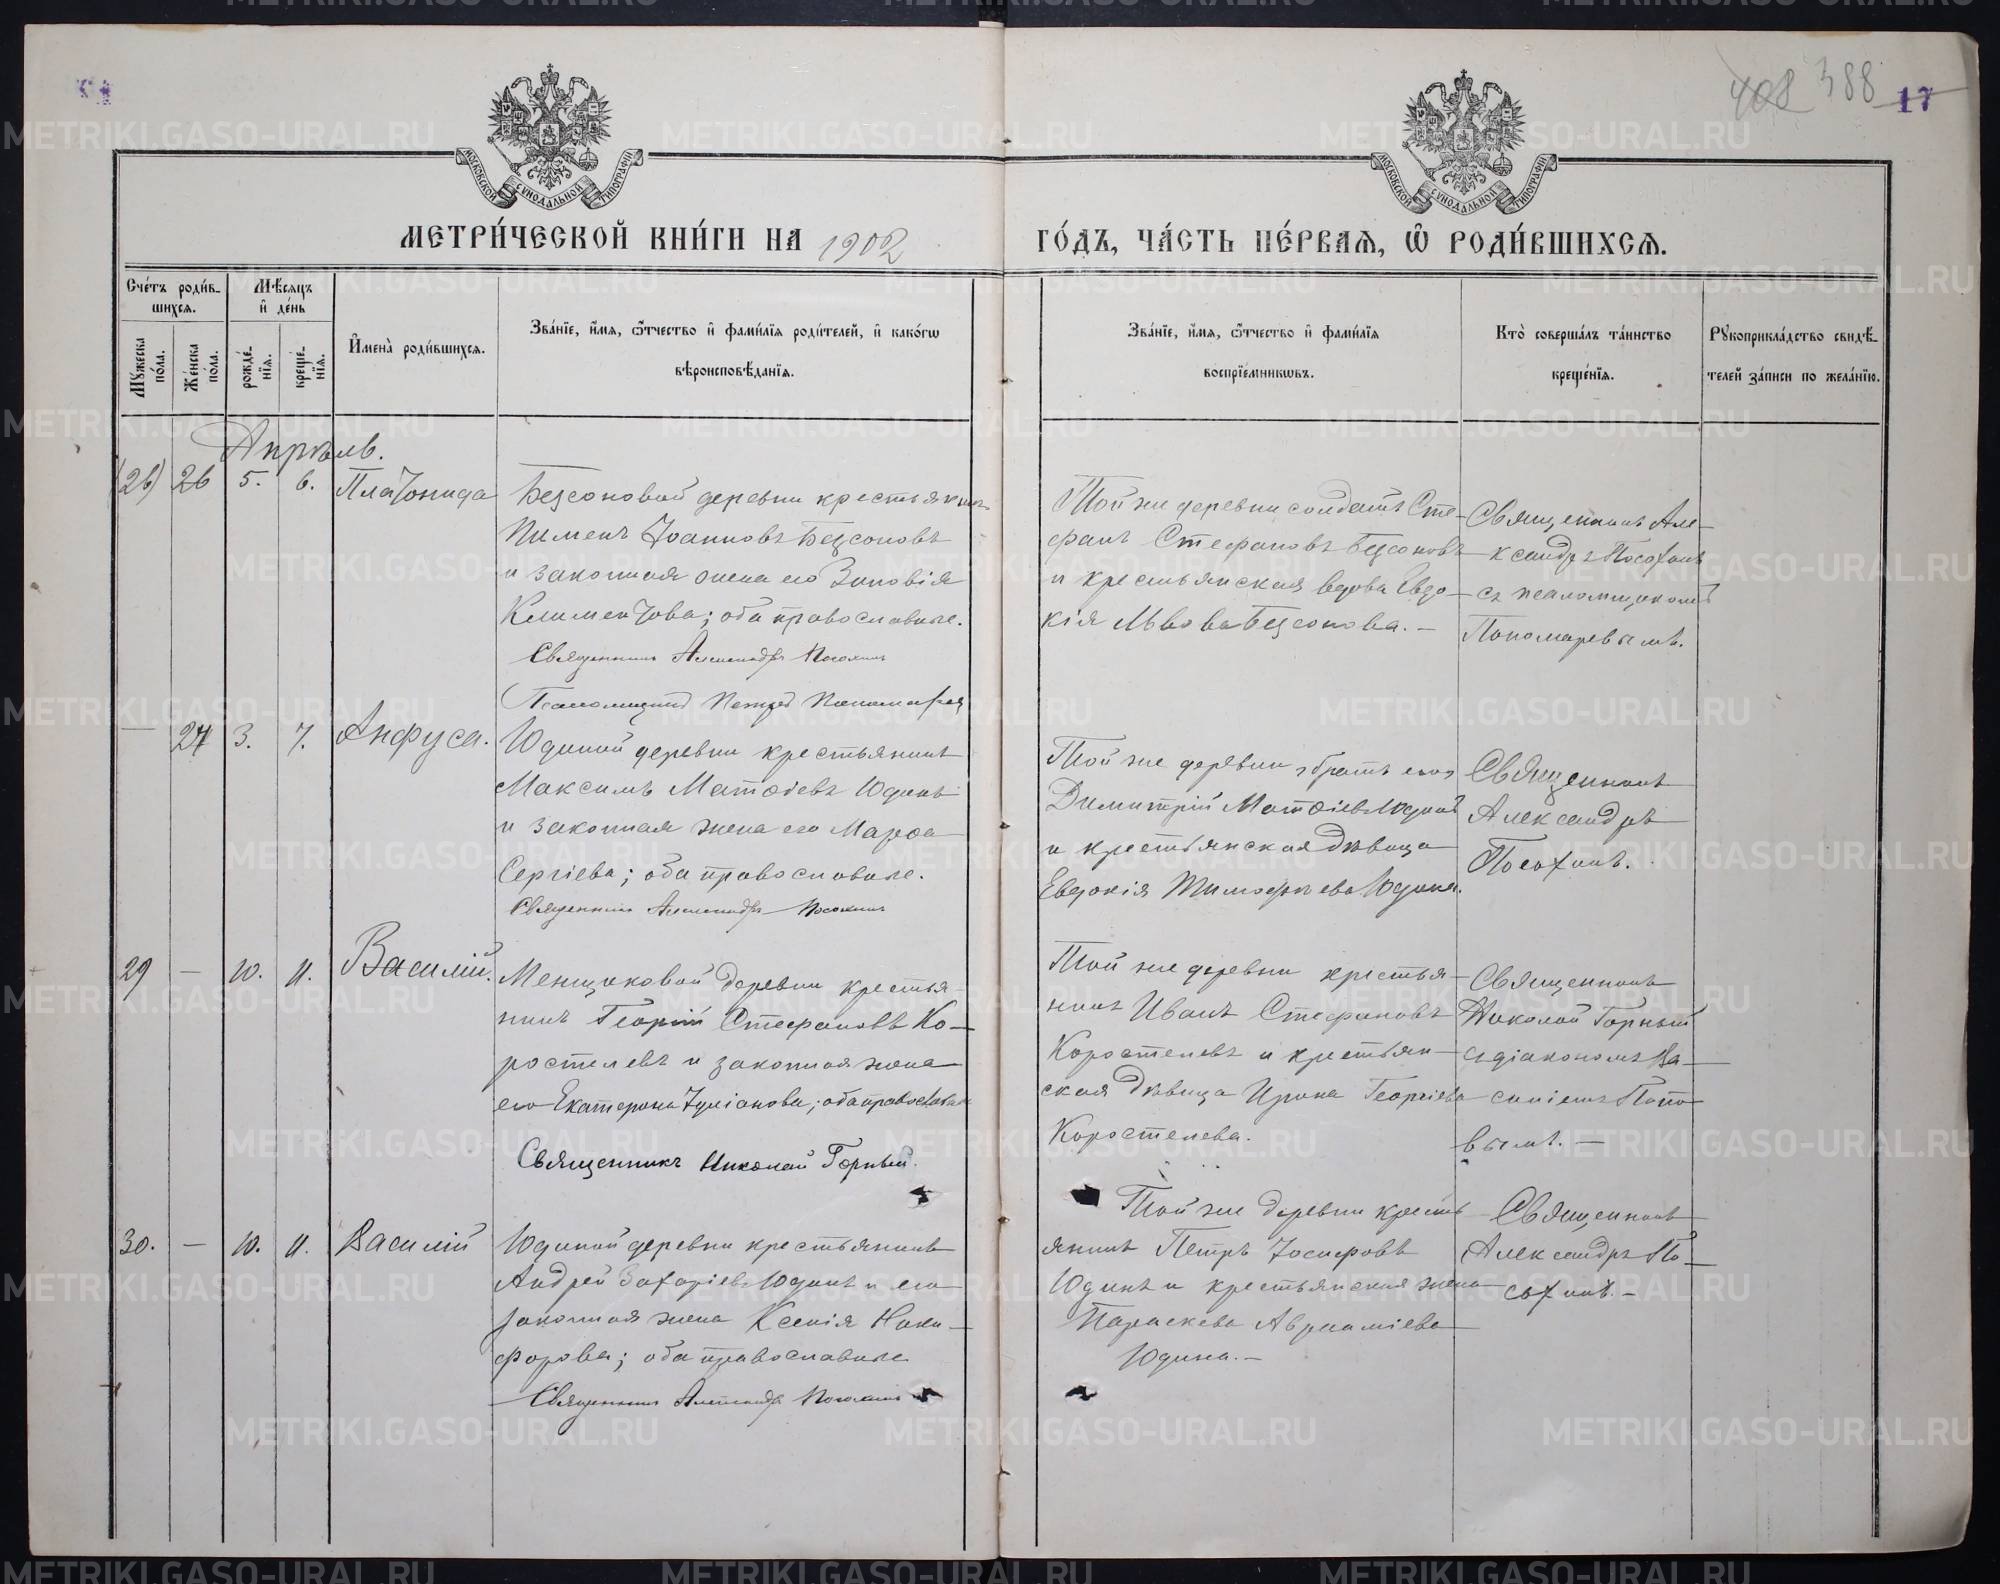 408 388 17
МОСКОВСКОЙ СѴНОДАЛЬНОЙ ТИПОГРАФІИ
МОСКОВСКОЙ СѴНОДАЛЬНОЙ ТИПОГРАФІИ
МЕТРИ́ЧЕСКОЙ КНИ́ГИ НА 1902
ГО́ДЪ, ЧА́СТЬ ПЕ́РВАЯ, Ѡ҆ РОДИ́ВШИХСЯ.
Сче́тъ роди́в-
шихся.
Мѣ́сяцъ
и҆ де́нь
Му́жеска по́ла.
Же́нска по́ла.
рожде́-
нїя.
креще́-
нїя.
И҆мена̀ роди́вшихся.
Зва́нїе, и҆́мя, ѻ҆́тчество и҆ фами́лїя роди́телей, и҆ како́гѡ
вѣроисповѣ́данїя.
Зва́нїе, и҆́мя, ѻ҆́тчество и҆ фами́лїя
воспрїе́мникѡвъ.
Кто̀ соверша́лъ та́инство
креще́нїя.
Рукоприкла́дство свидѣ́-
телей за́писи по жела́нїю.
Апрѣль.
(26) 26 5. 6. Платонида
Безсоновой деревни крестьянинъ
Пименъ Іоанновъ Безсоновъ
и законная жена его Зиновія
Климентова; оба православные.
Священникъ Александръ Посохинъ
Псаломщикъ Петръ Пономарев
Той же деревни солдатъ Сте-
фанъ Стефановъ Безсоновъ
и крестьянская вдова Евдо-
кія Львова Безсонова. –
Священникъ Але-
ксандръ Посохинъ
съ псаломщикомъ
Пономаревымъ.
— 27 3. 7. Анфуса.
Юдиной деревни крестьянинъ
Максимъ Матѳіевъ Юдинъ
и законная жена его Марѳа
Сергіева; оба православные.
Священникъ Александръ Посохинъ
Той же деревни, братъ его,
Димитрій Матѳіевъ Юдинъ
и крестьянская дѣвица
Евдокія Тимофѣева Юдина.
Священникъ
Александръ
Посохинъ.
29 — 10. 11. Василій.
Менщиковой деревни крестья-
нинъ Георгій Стефановъ Ко-
ростелевъ и законная жена
его Екатерина Іуліанова; оба православные
Священникъ Николай Горный.
Той же деревни крестья-
нинъ Иванъ Стефановъ
Коростелевъ и крестьян-
ская дѣвица Ирина Георгіева
Коростелева.
Священникъ
Николай Горный
съ діакономъ Ва-
силіемъ Попо-
вымъ. –
30. — 10. 11. Василій
Юдиной деревни крестьянинъ
Андрей Захаріевъ Юдинъ и его
законная жена Ксенія Ники-
форова; оба православные
Священникъ Александръ Посохинъ
Той же деревни кресть-
янинъ Петръ Іосифовъ
Юдинъ и крестьянская жена
Параскева Авраамієва
Юдина. –
Священникъ
Александръ По-
сохинъ. –
METRIKI.GASO-URAL.RU